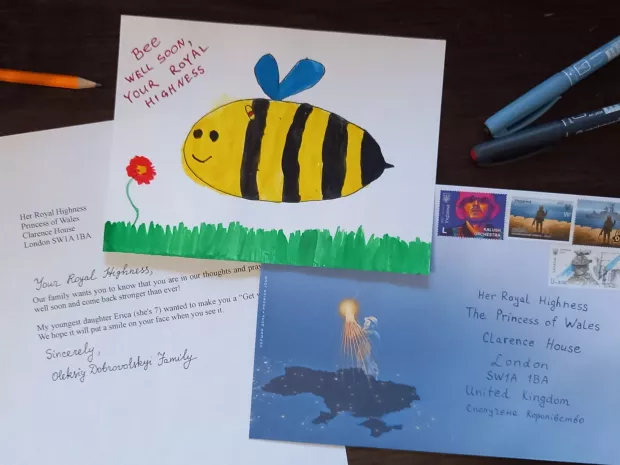 Bee
WELL SOON,
YOUR ROYAL
HIGHNESS
Her Royal Highness
Princess of Wales
Clarence House
London SW1A 1BA
Your Royal Highness,
Our family wants you to know that you are in our thoughts and
well soon and come back stronger than ever!
My youngest daughter Erica (she's 7) wanted to make you a "Get
We hope it will put a smile on your face when you see it.
Sincerely,
Oleksiy Dobrovolskyi Family
KALUSH
ORCHESTRA
L
Her Royal Highness
The Princess of Wales
Clarence House
London
SW1A 1BA
United Kingdom
Сполучене Королівство